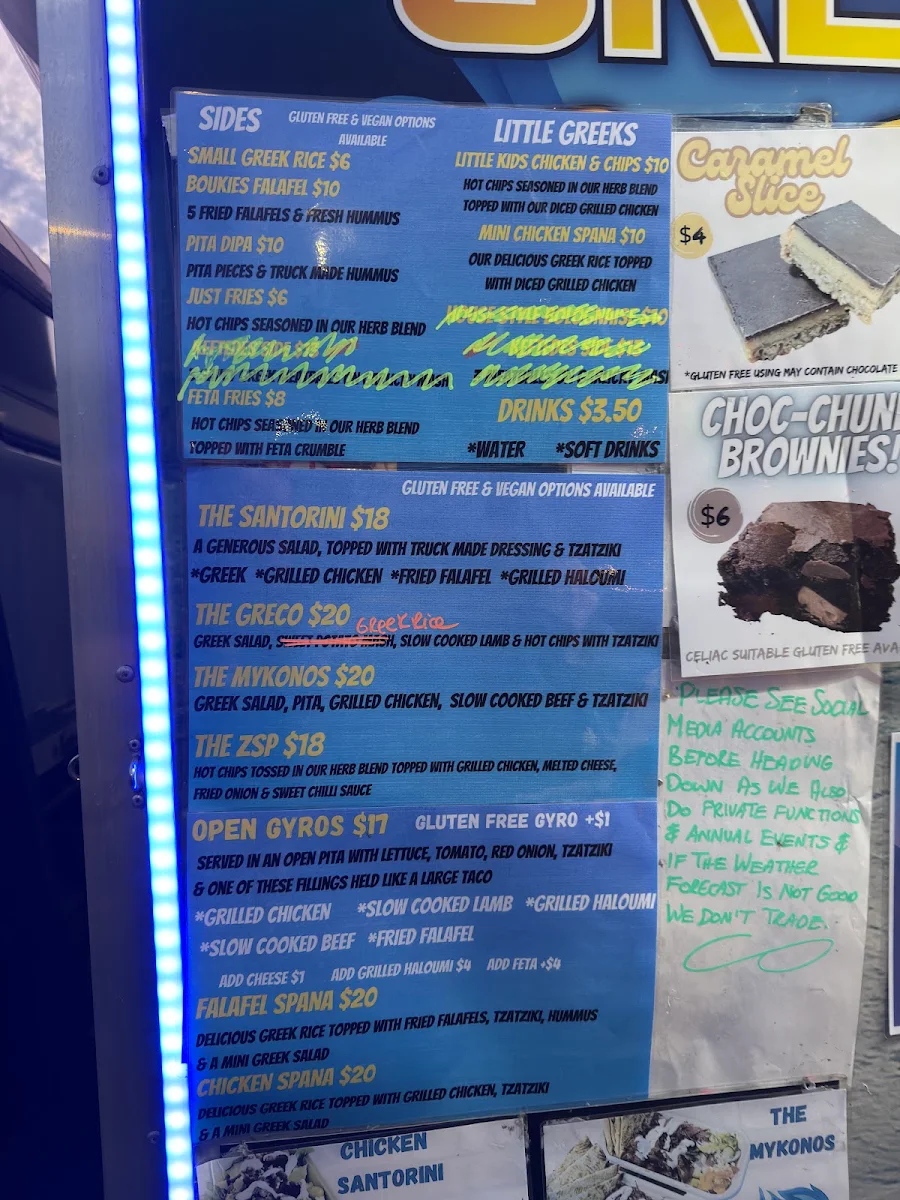 SIDES
GLUTEN FREE & VEGAN OPTIONS
AVAILABLE
SMALL GREEK RICE $6
BOUKIES FALAFEL $10
5 FRIED FALAFELS & FRESH HUMMUS
PITA DIPA $10
PITA PIECES & TRUCK MADE HUMMUS
JUST FRIES $6
HOT CHIPS SEASONED IN OUR HERB BLEND
FETA FRIES $8
HOT CHIPS SEASONED IN OUR HERB BLEND
TOPPED WITH FETA CRUMBLE
LITTLE GREEKS
LITTLE KIDS CHICKEN & CHIPS $10
HOT CHIPS SEASONED IN OUR HERB BLEND
TOPPED WITH OUR DICED GRILLED CHICKEN
MINI CHICKEN SPANA $10
OUR DELICIOUS GREEK RICE TOPPED
WITH DICED GRILLED CHICKEN
DRINKS $3.50
*WATER *SOFT DRINKS
GLUTEN FREE & VEGAN OPTIONS AVAILABLE
THE SANTORINI $18
A GENEROUS SALAD, TOPPED WITH TRUCK MADE DRESSING & TZATZIKI
*GREEK *GRILLED CHICKEN *FRIED FALAFEL *GRILLED HALOUMI
THE GRECO $20
Greek Rice
GREEK SALAD, SLOW COOKED LAMB & HOT CHIPS WITH TZATZIKI
THE MYKONOS $20
GREEK SALAD, PITA, GRILLED CHICKEN, SLOW COOKED BEEF & TZATZIKI
THE ZSP $18
HOT CHIPS TOSSED IN OUR HERB BLEND TOPPED WITH GRILLED CHICKEN, MELTED CHEESE,
FRIED ONION & SWEET CHILLI SAUCE
OPEN GYROS $17 GLUTEN FREE GYRO +$1
SERVED IN AN OPEN PITA WITH LETTUCE, TOMATO, RED ONION, TZATZIKI
& ONE OF THESE FILLINGS HELD LIKE A LARGE TACO
*GRILLED CHICKEN *SLOW COOKED LAMB *GRILLED HALOUMI
*SLOW COOKED BEEF *FRIED FALAFEL
ADD CHEESE $1 ADD GRILLED HALOUMI $4 ADD FETA +$4
FALAFEL SPANA $20
DELICIOUS GREEK RICE TOPPED WITH FRIED FALAFELS, TZATZIKI, HUMMUS
& A MINI GREEK SALAD
CHICKEN SPANA $20
DELICIOUS GREEK RICE TOPPED WITH GRILLED CHICKEN, TZATZIKI
& A MINI GREEK SALAD
Caramel
Slice
$4
*GLUTEN FREE USING MAY CONTAIN CHOCOLATE
CHOC-CHUN
BROWNIES!
$6
CELIAC SUITABLE GLUTEN FREE AVA
PLEASE SEE SOCIAL
MEDIA ACCOUNTS
BEFORE HEADING
DOWN AS WE ALSO
DO PRIVATE FUNCTIONS
& ANNUAL EVENTS &
IF THE WEATHER
FORECAST IS NOT GOOD
WE DON'T TRADE.
CHICKEN
SANTORINI
THE
MYKONOS